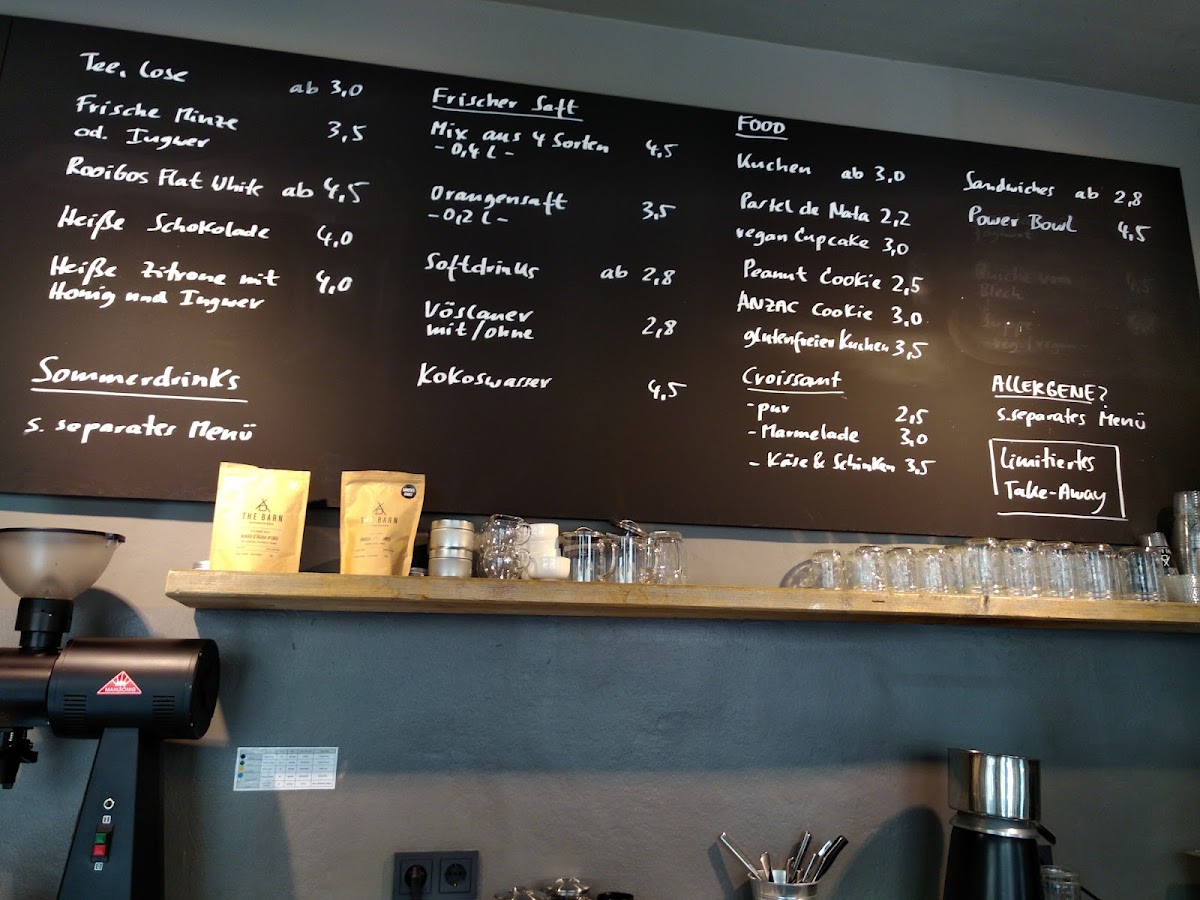 Tee, lose ab 3,0
Frische Minze
od. Ingwer 3,5
Rooibos Flat White ab 4,5
Heiße Schokolade 4,0
Heiße Zitrone mit 4,0
Honig und Ingwer
Sommerdrinks
s. separates Menü
Frischer Saft
Mix aus 4 Sorten 4,5
- 0,4 L -
Orangensaft 3,5
- 0,2 L -
Softdrinks ab 2,8
Vöslauer
mit/ohne 2,8
Kokoswasser 4,5
FOOD
Kuchen ab 3,0
Pastel de Nata 2,2
vegan Cupcake 3,0
Peanut Cookie 2,5
ANZAC Cookie 3,0
glutenfreier Kuchen 3,5
Croissant
- pur 2,5
- Marmelade 3,0
- Käse & Schinken 3,5
Sandwiches ab 2,8
Power Bowl 4,5
Joghurt
Quiche vom 4,5
Blech
Suppe
- vegi/vegan -
ALLERGENE?
s. separates Menü
Limitiertes
Take-Away
THE BARN
THE BARN
MAHLKÖNIG